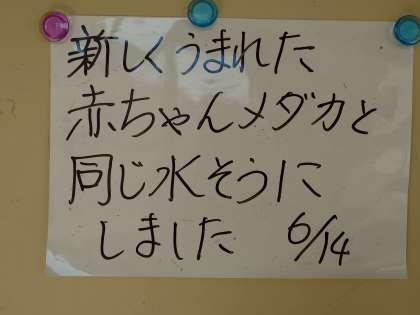 新しくうまれた
赤ちゃんメダカと
同じ水そうに
しました 6/14